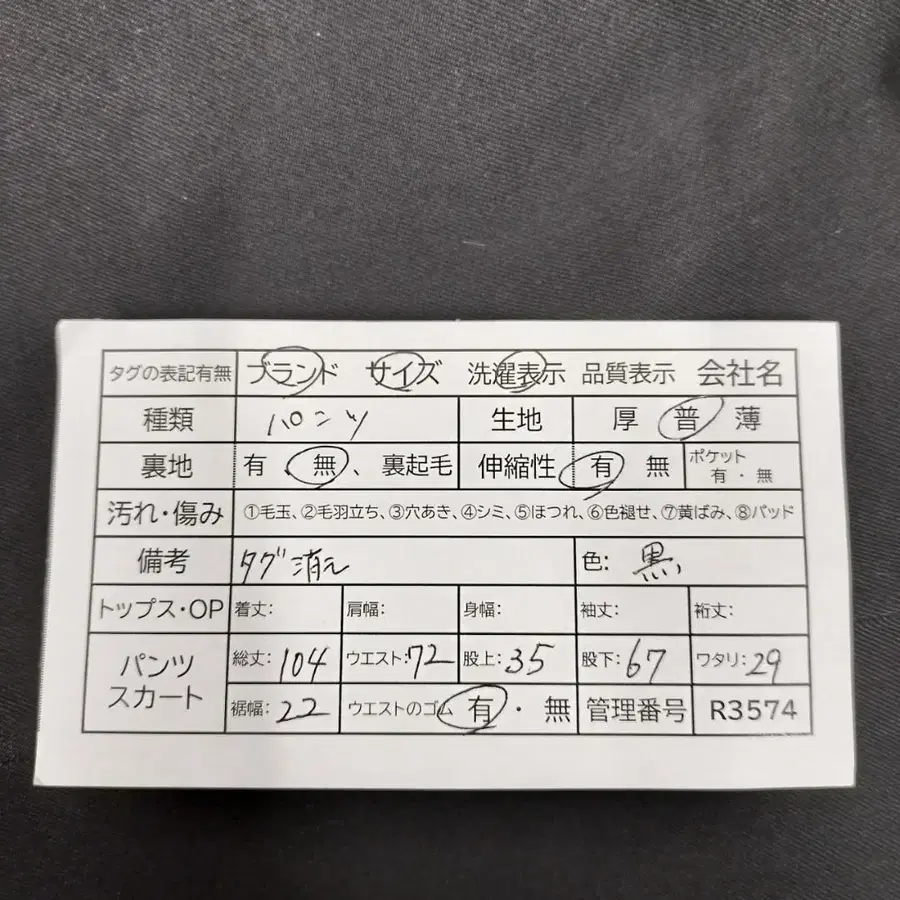 タグの表記有無 ブランド サイズ 洗濯表示 品質表示 会社名
種類 パンツ 生地 厚 普 薄
裏地 有 、 無 、 裏起毛 伸縮性 有 無 ポケット 有 ・ 無
汚れ・傷み ①毛玉、②毛羽立ち、③穴あき、④シミ、⑤ほつれ、⑥色褪せ、⑦黄ばみ、⑧パッド
備考 タグ消え 色: 黒
トップス・OP 着丈: 肩幅: 身幅: 袖丈: 裄丈:
パンツ スカート 総丈: 104 ウエスト: 72 股上: 35 股下: 67 ワタリ: 29
裾幅: 22 ウエストのゴム 有 ・ 無 管理番号 R3574